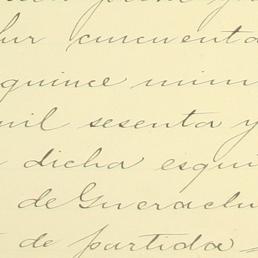 Sur cincuenta
quince min
mil sesenta y
dicha esqui
de Gueraclu
de partida